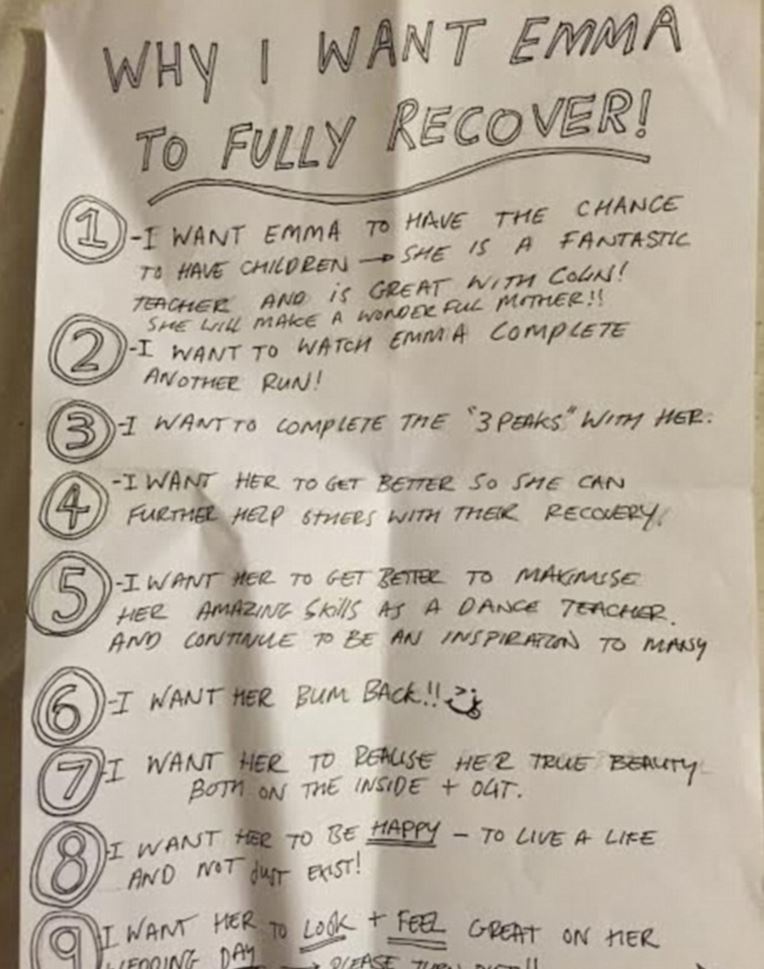 WHY I WANT EMMA
TO FULLY RECOVER!
1 -I WANT EMMA TO HAVE THE CHANCE
TO HAVE CHILDREN → SHE IS A FANTASTIC
TEACHER AND IS GREAT WITH COLIN!
SHE WILL MAKE A WONDERFUL MOTHER!!
2 -I WANT TO WATCH EMMA COMPLETE
ANOTHER RUN!
3 -I WANT TO COMPLETE THE "3 PEAKS" WITH HER.
4 -I WANT HER TO GET BETTER SO SHE CAN
FURTHER HELP OTHERS WITH THEIR RECOVERY.
5 -I WANT HER TO GET BETTER TO MAXIMISE
HER AMAZING SKILLS AS A DANCE TEACHER.
AND CONTINUE TO BE AN INSPIRATION TO MANY
6 -I WANT HER BUM BACK!!
7 I WANT HER TO REALISE HER TRUE BEAUTY
BOTH ON THE INSIDE + OUT.
8 -I WANT HER TO BE HAPPY - TO LIVE A LIFE
AND NOT JUST EXIST!
9 I WANT HER TO LOOK + FEEL GREAT ON HER
WEDDING DAY → PLEASE TURN OVER!!